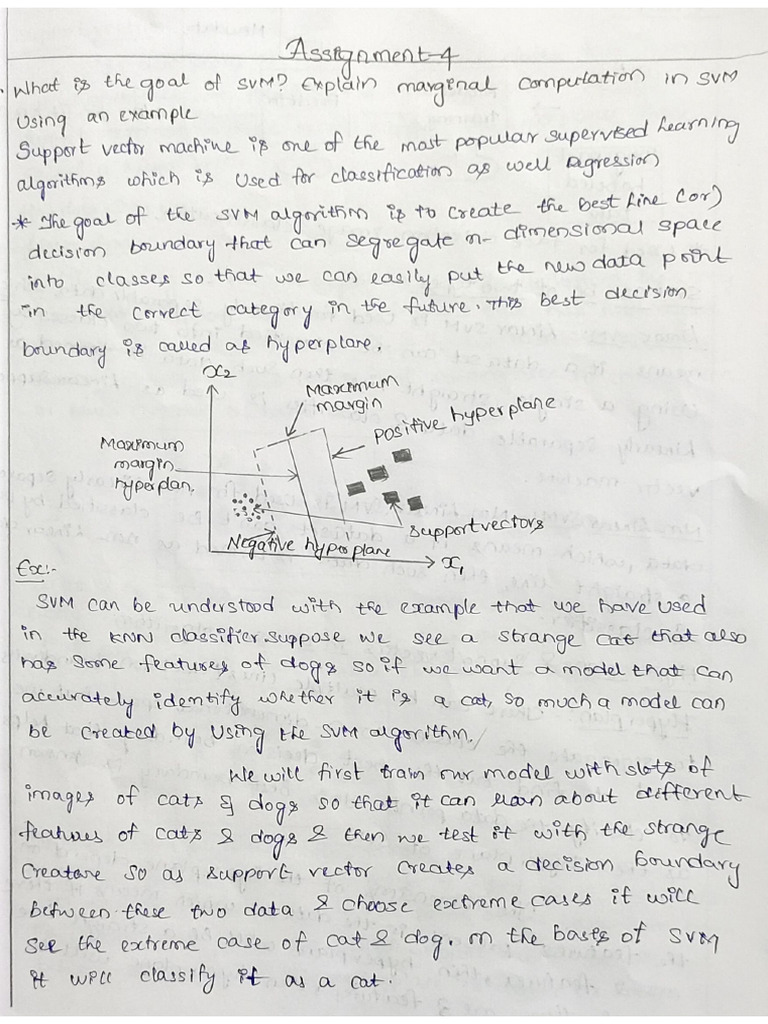 Assignment-4
What is the goal of SVM? Explain marginal computation in SVM
Using an example
Support vector machine is one of the most popular supervised learning
algorithms which is used for classification as well Regression
* The goal of the SVM algorithm is to create the best line (or)
decision boundary that can segregate n-dimensional space
into classes so that we can easily put the new data point
in the correct category in the future. This best decision
boundary is called as hyperplane.
x2
Maximum
margin
positive hyperplane
Maximum
margin
hyperplan.
Support vectors
Negative hyperplane
x1
Ex:-
SVM can be understood with the example that we have used
in the KNN classifier. suppose we see a strange cat that also
has some features of dogs so if we want a model that can
accurately identify whether it is a cat, so much a model can
be created by using the SVM algorithm.
We will first train our model with slots of
images of cats & dogs so that it can learn about different
features of cats & dogs & then we test it with the strange
Creatore so as support vector creates a decision boundary
between these two data & choose extreme cases it will
see the extreme case of cat & dog. on the basis of SVM
it will classify it as a cat.